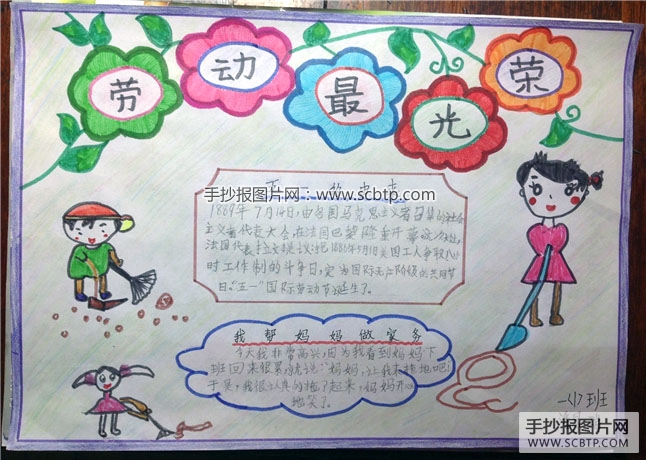 劳动最光荣
手抄报图片网：www.scbtp.com
1889年7月14日,由各国马克思主义者召集的社会
主义者代表大会,在法国巴黎隆重开幕
法国代表拉文提议把1886年5月1日美国工人争取八小
时工作制的斗争日,定为国际无产阶级的共同节
日。"五一"国际劳动节诞生了。
我帮妈妈做家务
今天我非常高兴,因为我看到妈妈下
班回来很累,就说:"妈妈,让我来拖地吧!
于是,我很认真的拖了起来,妈妈开心
地笑了。
一(1)班
手抄报图片网
WWW.SCBTP.COM